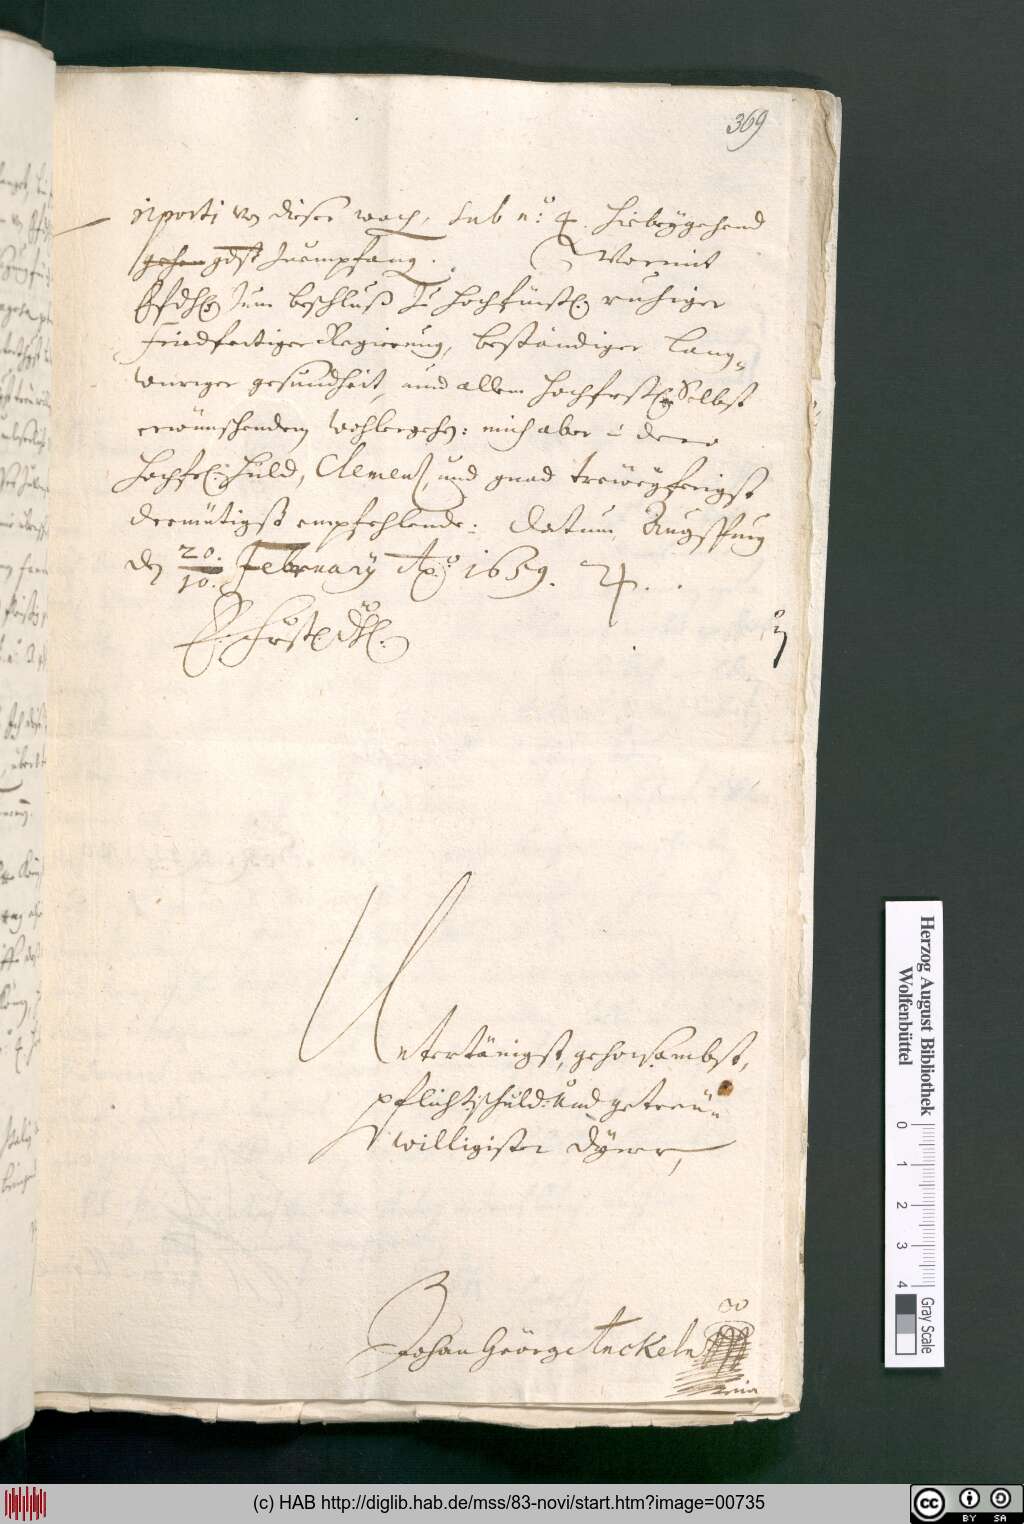 369
raporti von dieser woch, sub n.º 4. hiebeygehend
gehen gdst zuempfang. Wormit
Efdhl zum beschluß zu hochfürstl. ruhiger
Friedfertiger Regierung, beständiger lang-
wuriger gesundheit, und allem hochfrstl Selbst
erwünschendem wohlergehen: mich aber dero
hochfl. huld, Clemenz, und gnad treweyferigst
demütigst empfehlende: Datum Augspurg
den 20./10. February Aº 1659.
E. Fürstl. Dhl.
Untertänigst, gehorsambst,
pflichtschuld: und getreü-
willigister Dyener,
Johan George Anckeln
mia
Herzog August Bibliothek
Wolfenbüttel
0 1 2 3 4
Gray Scale
(c) HAB http://diglib.hab.de/mss/83-novi/start.htm?image=00735
cc BY SA